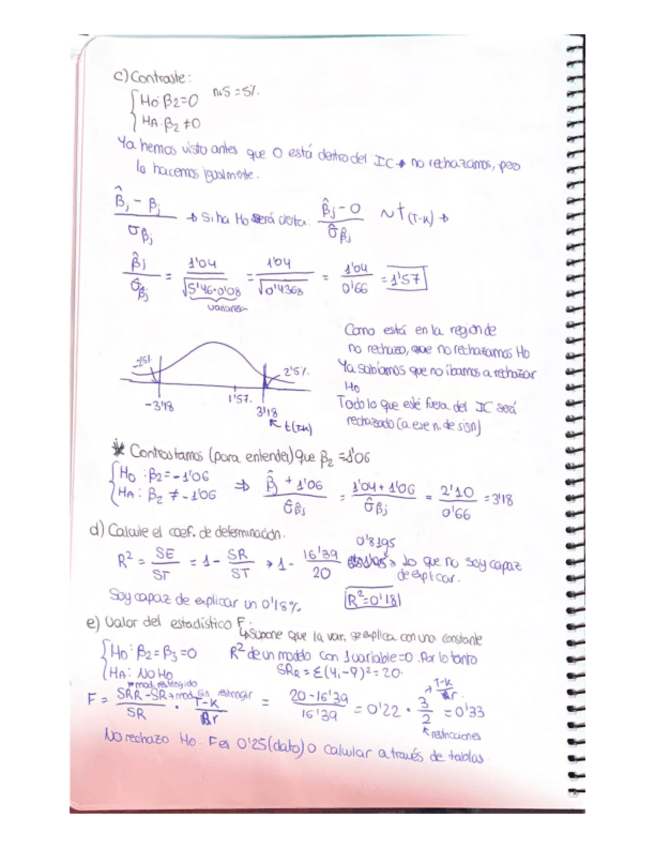 c) Contraste:
{ H0: β2=0 n.s=5%.
HA: β2 ≠0
Ya hemos visto antes que 0 está dentro del IC → no rechazamos, pero
lo hacemos igualmente.
β̂j - βj / σβj → Si ha H0 será cierta: β̂j - 0 / σ̂βj ~ t(T-K) →
β̂j / σ̂βj = 1'04 / √5'46·0'08 = 1'04 / √0'4368 = 1'04 / 0'66 = 1'57
varianza
Como está en la región de
no rechazo, que no rechazamos H0
Ya sabíamos que no íbamos a rechazar
H0
Todo lo que esté fuera del IC será
rechazado (a ese n. de sign)
2'5% 2'5%
-3'18 1'57. 3'18
t(T-K)
* Contrastamos (para entender) que β2 = 1'06
{ H0: β2 = -1'06
HA: β2 ≠ -1'06 ⇒ β̂j + 1'06 / σ̂βj = 1'04 + 1'06 / σ̂βj = 2'10 / 0'66 = 3'18
d) Calcule el coef. de determinación.
R² = SE / ST = 1 - SR / ST → 1 - 16'39 / 20 0'8195 → Lo que no soy capaz
de explicar.
Soy capaz de explicar un 0'18% R²=0'181
e) Valor del estadístico F:
↳ Supone que la var. se explica con una constante
{ H0: β2 = β3 = 0 R² de un modelo con 1 variable = 0. Por lo tanto
HA: NO H0 SRR = Σ(Yi - Ȳ)² = 20.
mod. restringido mod. sin restringir
F = SRR - SR / SR · T-K / r = 20 - 16'39 / 16'39 = 0'22 · 3 / 2 = 0'33
T-K / r
restricciones
No rechazo H0. F es 0'25 (dato) o calcular a través de tablas.